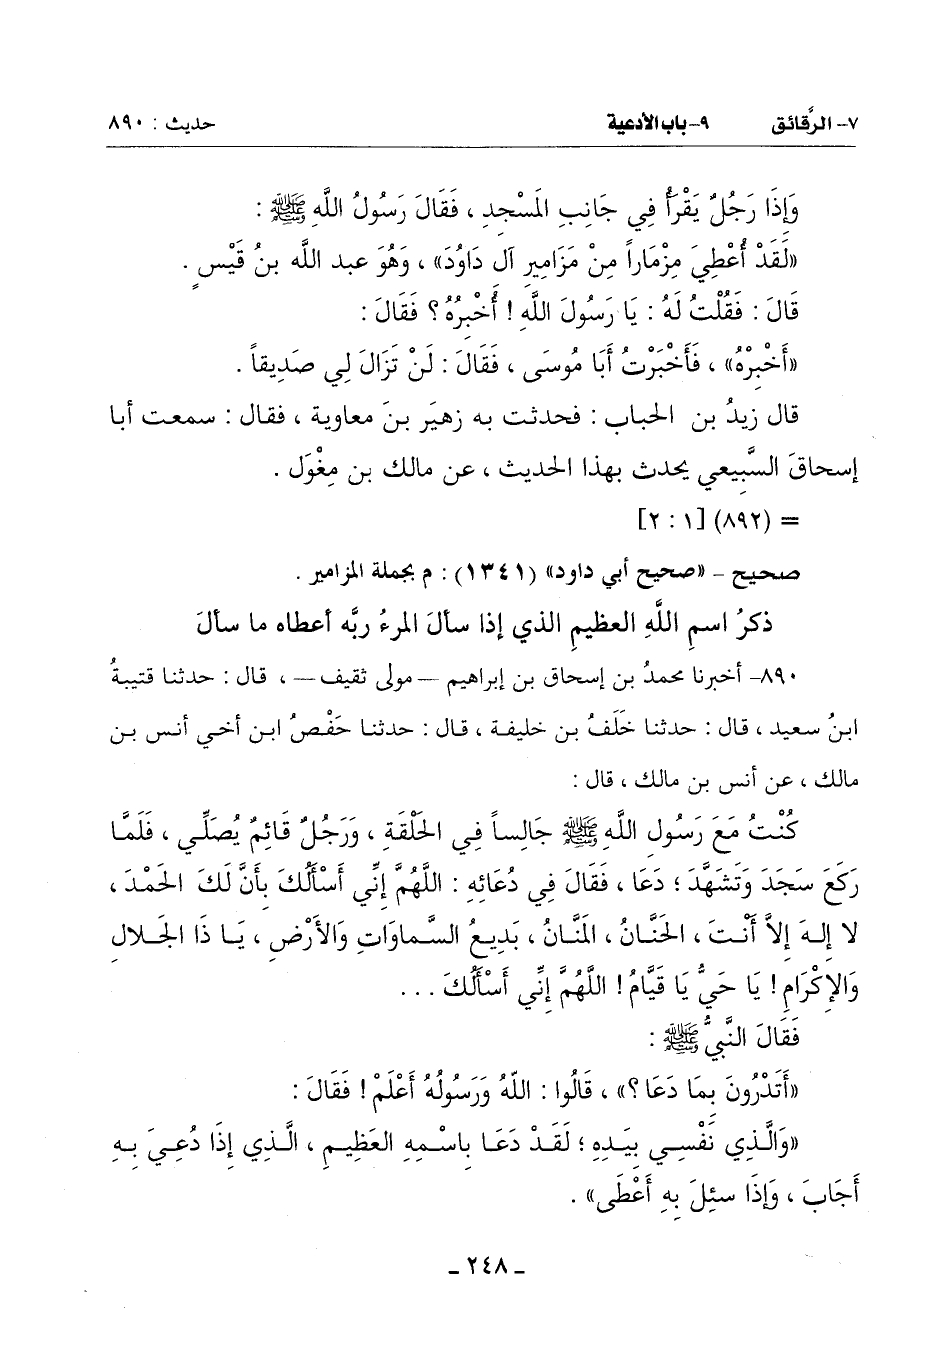 ٧- الرَّقائق ٩-باب الأدعية حديث : ٨٩٠
وَإِذَا رَجُلٌ يَقْرَأُ فِي جَانِبِ المَسْجِدِ ، فَقَالَ رَسُولُ اللَّهِ ﷺ :
«لَقَدْ أُعْطِيَ مِزْمَاراً مِنْ مَزَامِيرِ آلِ دَاوُدَ» ، وَهُوَ عبد الله بنُ قَيْسٍ .
قَالَ : فَقُلْتُ لَهُ : يَا رَسُولَ اللَّهِ ! أُخْبِرُهُ ؟ فَقَالَ :
«أَخْبِرْهُ» ، فَأَخْبَرْتُ أَبَا مُوسَى ، فَقَالَ : لَنْ تَزَالَ لِي صَدِيقاً .
قال زيدُ بن الحباب : فحدثت به زهيَر بنَ معاوية ، فقال : سمعت أبا
إسحاقَ السَّبِيعي يحدث بهذا الحديث ، عن مالك بن مِغْوَل .
= (٨٩٢) [١ : ٢]
صحيح - «صحيح أبي داود» (١٣٤١) : م بجملة المزامير .
ذكرُ اسمِ اللَّهِ العظيمِ الذي إذا سألَ المرءُ ربَّه أعطاه ما سألَ
٨٩٠- أخبرنا محمدُ بن إسحاق بن إبراهيم —مولى ثقيف— ، قال : حدثنا قتيبةُ
ابنُ سعيد ، قال : حدثنا خَلَفُ بن خليفة ، قال : حدثنا حَفْصُ ابن أخي أنس بن
مالك ، عن أنس بن مالك ، قال :
كُنْتُ مَعَ رَسُولِ اللَّهِ ﷺ جَالِساً فِي الحَلْقَةِ ، وَرَجُلٌ قَائِمٌ يُصَلِّي ، فَلَمَّا
رَكَعَ سَجَدَ وَتَشَهَّدَ ؛ دَعَا ، فَقَالَ فِي دُعَائِهِ : اللَّهُمَّ إِنِّي أَسْأَلُكَ بِأَنَّ لَكَ الحَمْدَ ،
لا إِلهَ إِلاَّ أَنْتَ ، الحَنَّانُ ، المَنَّانُ ، بَدِيعُ السَّماوَاتِ وَالأَرْضِ ، يَا ذَا الجَلالِ
وَالإِكْرَامِ ! يَا حَيُّ يَا قَيَّامُ ! اللَّهُمَّ إِنِّي أَسْأَلُكَ . . .
فَقَالَ النَّبِيُّ ﷺ :
«أَتَدْرُونَ بِمَا دَعَا ؟» ، قَالُوا : اللَّهُ وَرَسُولُهُ أَعْلَمْ ! فَقَالَ :
«وَالَّذِي نَفْسِي بِيَدِهِ ؛ لَقَدْ دَعَا بِاسْمِهِ العَظِيمِ ، الَّذِي إِذَا دُعِيَ بِهِ
أَجَابَ ، وَإِذَا سئِلَ بِهِ أَعْطَى» .
- ٢٤٨ -